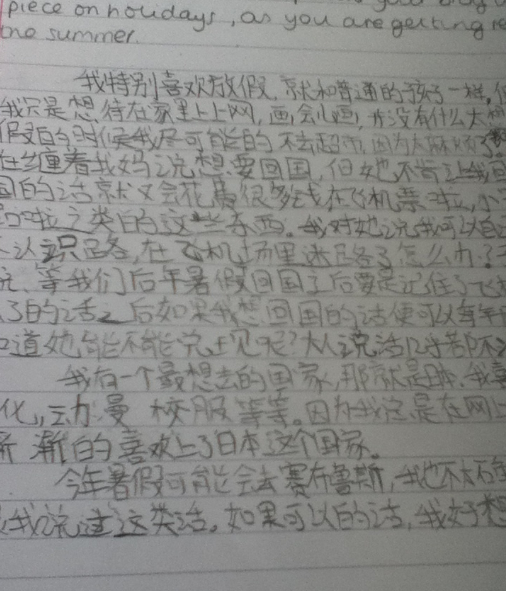 piece on holidays, as you are getting re
he summer.
我特别喜欢放假,就和普通的孩子一样,但
我只是想待在家里上上网,画会儿画,并没有什么大
假的时候我尽可能的不去超市,因为太麻烦了
在缠着我妈说想要回国,但她不肯让我回
国的话就又会花费很多钱在飞机票啦,小
的啦之类的这些东西。我对她说我可以自己
不认识路,在飞机场里迷路了怎么办?
说,等我们后年暑假回国了后要是记住了飞
了的话之后如果我想回国的话便可以每年
知道她能不能说上见呢?大人说话几乎都不
我有一个最想去的国家,那就是日本,我喜
化,动漫 校服等等。因为我总是在网上
渐渐的喜欢上了日本这个国家。
今年暑假可能会去赛布鲁斯,我也不太确
我说过这类话。如果可以的话,我好想